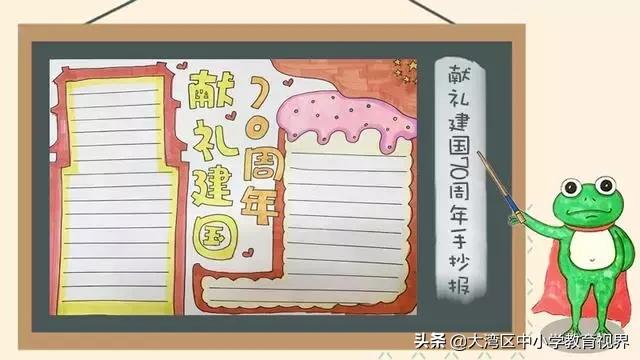 献礼建国
70周年
献礼建国70周年手抄报
头条 @大湾区中小学教育视界